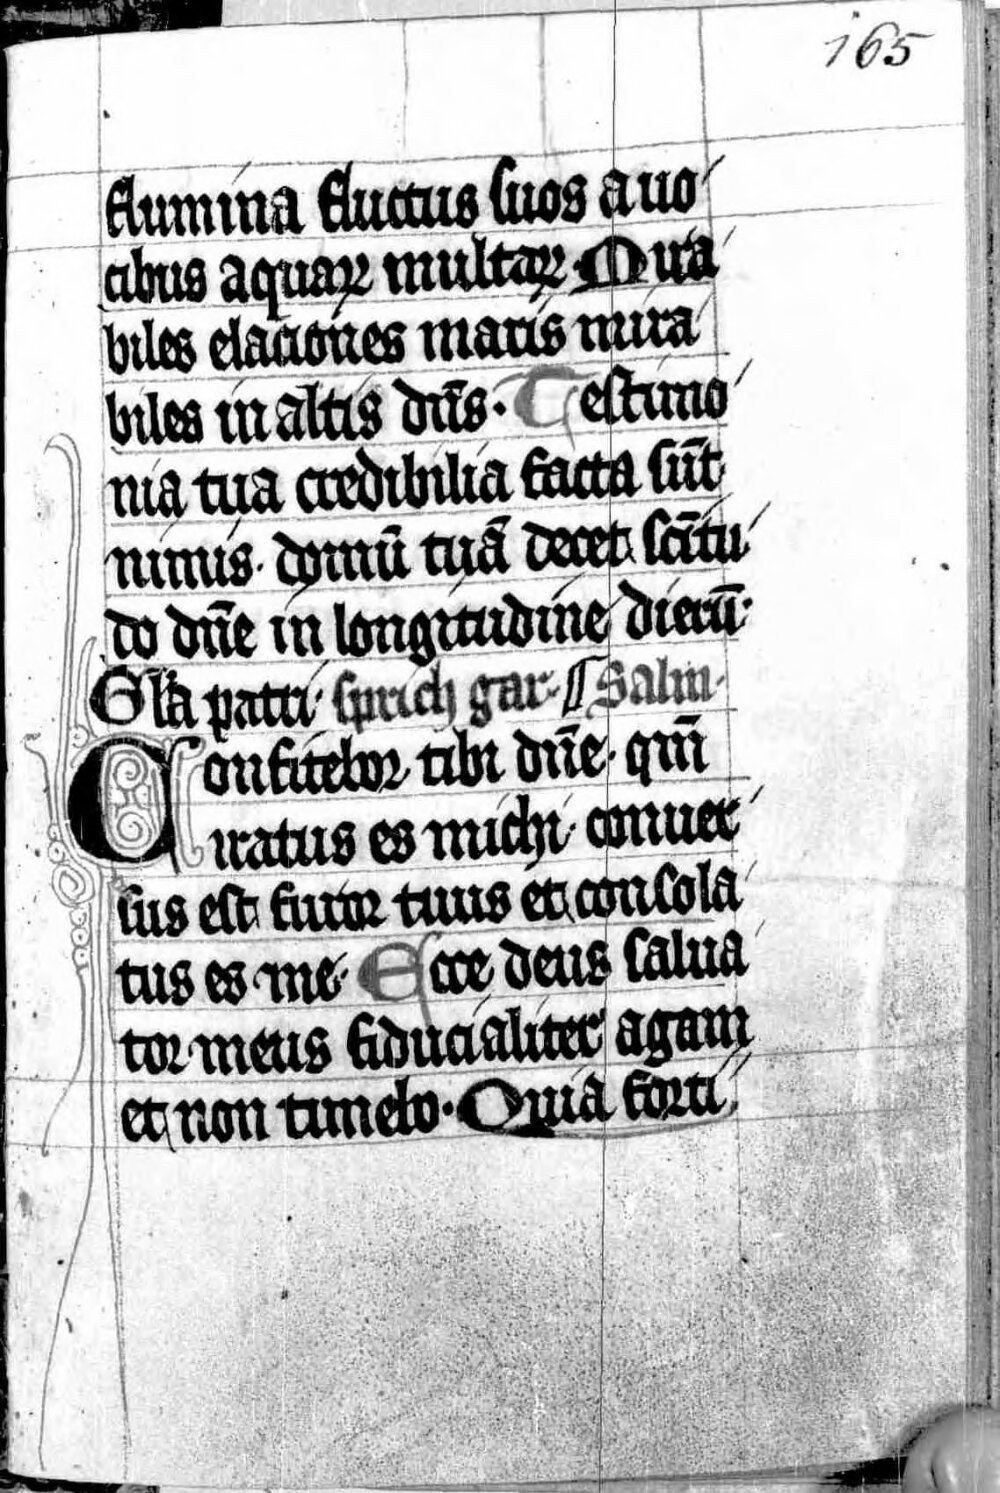 165
flumina fluctus suos a uo
cibus aquaꝝ multaꝝ. Mira
biles elaciones maris mira
biles in altis dn̄s. Testimo
nia tua credibilia facta sūt
nimis. domū tuā decet sc̄itu
do dn̄e in longitudine dierū.
Gl̄a patri. sprich gar. ¶ Salm.
Confitebor tibi dn̄e. qm̄
iratus es michi. conuer
sus est furor tuus et consola
tus es me. Ecce deus salua
tor meus fiducialiter agam
et non timebo. Quia forti